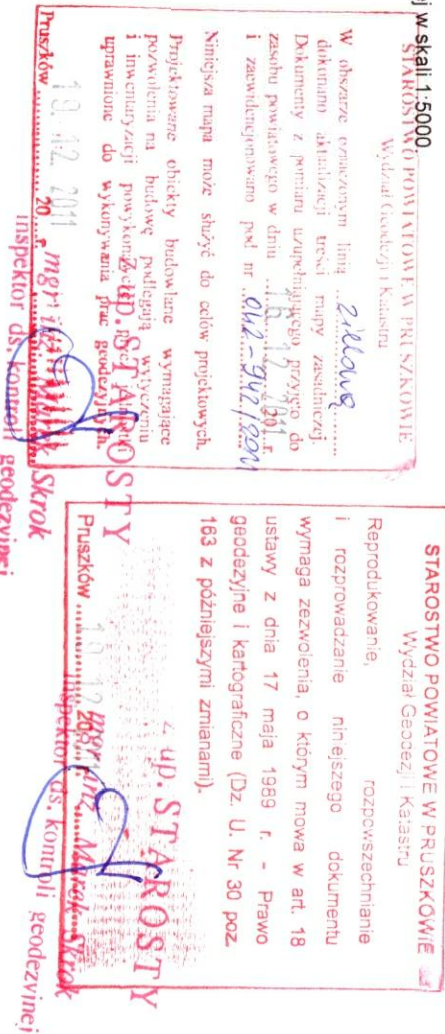 j w skali 1:5000
STAROSTWO POWIATOWE W PRUSZKOWIE
Wydział Geodezji i Katastru
W obszarze oznaczonym linią ...zieloną...
dokonano aktualizacji treści mapy zasadniczej.
Dokumenty z pomiaru uzupełniającego przyjęto do
zasobu powiatowego w dniu 2011 r.
i zaewidencjonowano pod nr ..042-942/2011
Niniejsza mapa może służyć do celów projektowych.
Projektowane obiekty budowlane wymagające
pozwolenia na budowę podlegają wytyczeniu
i inwentaryzacji
uprawnione do wykonywania prac geodezyjnych.
Z up. STAROSTY
Pruszków 19. 12. 2011 20 r.
mgr inż. Skrok
inspektor ds. kontroli geodezyjnej
STAROSTWO POWIATOWE W PRUSZKOWIE
Wydział Geodezji i Katastru
Reprodukowanie, rozpowszechnianie
i rozprowadzanie niniejszego dokumentu
wymaga zezwolenia, o którym mowa w art. 18
ustawy z dnia 17 maja 1989 r. - Prawo
geodezyjne i kartograficzne (Dz. U. Nr 30 poz.
163 z późniejszymi zmianami).
Z up. STAROSTY
Pruszków 19. 12. 20
mgr inż. Marek Skrok
inspektor ds. kontroli geodezyjnej